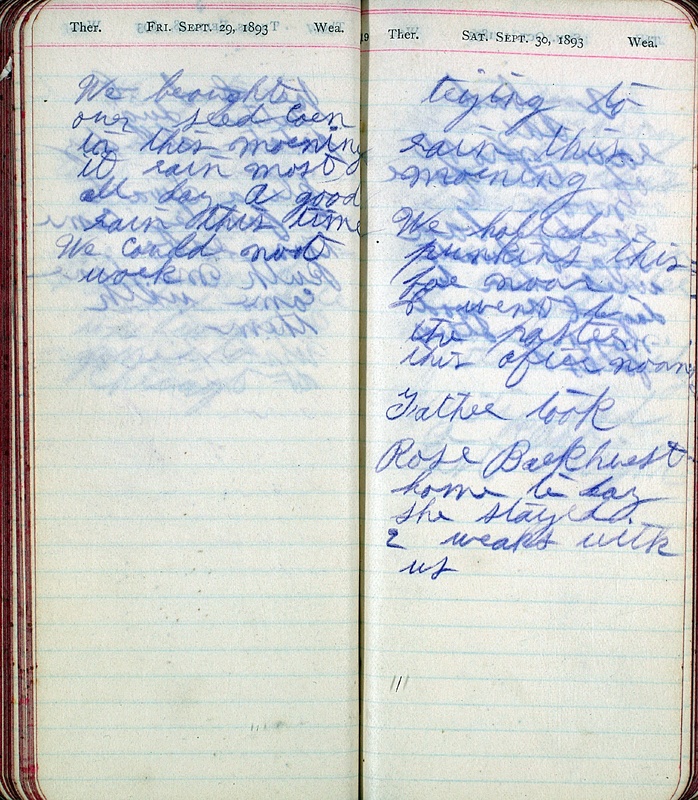 Ther. FRI. SEPT. 29, 1893 Wea.
We brought
our seed Corn
in this morning
it rain most
all day a good
rain this time
We could not
work
Ther. SAT. SEPT. 30, 1893 Wea.
trying to
rain this
morning
We holled
punkins this
for noon
the
this after noon
Father took
Rose
home to day
she stayed
2 weaks with
us